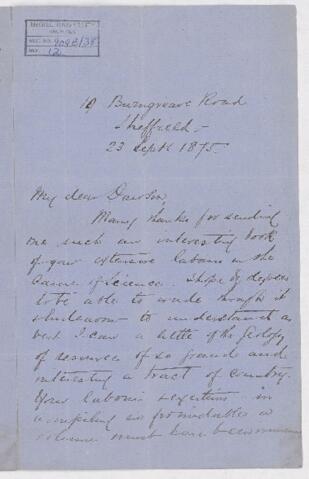 McGILL UNIVERSITY
ARCHIVES
ACC. NO.
REF.
10 Burngreave Road
Sheffield -
23 Sept 1875.
My dear Dawson,
Many thanks for sending
me such an interesting book
of your extensive labours in the
Cause of Science. I hope by degrees
to be able to wade through it
& endeavour to understand as
best I can a little of the Geology
& resources of so grand and
interesting a tract of country.
Your labours & exertions in
compiling so formidable a
volume must have been